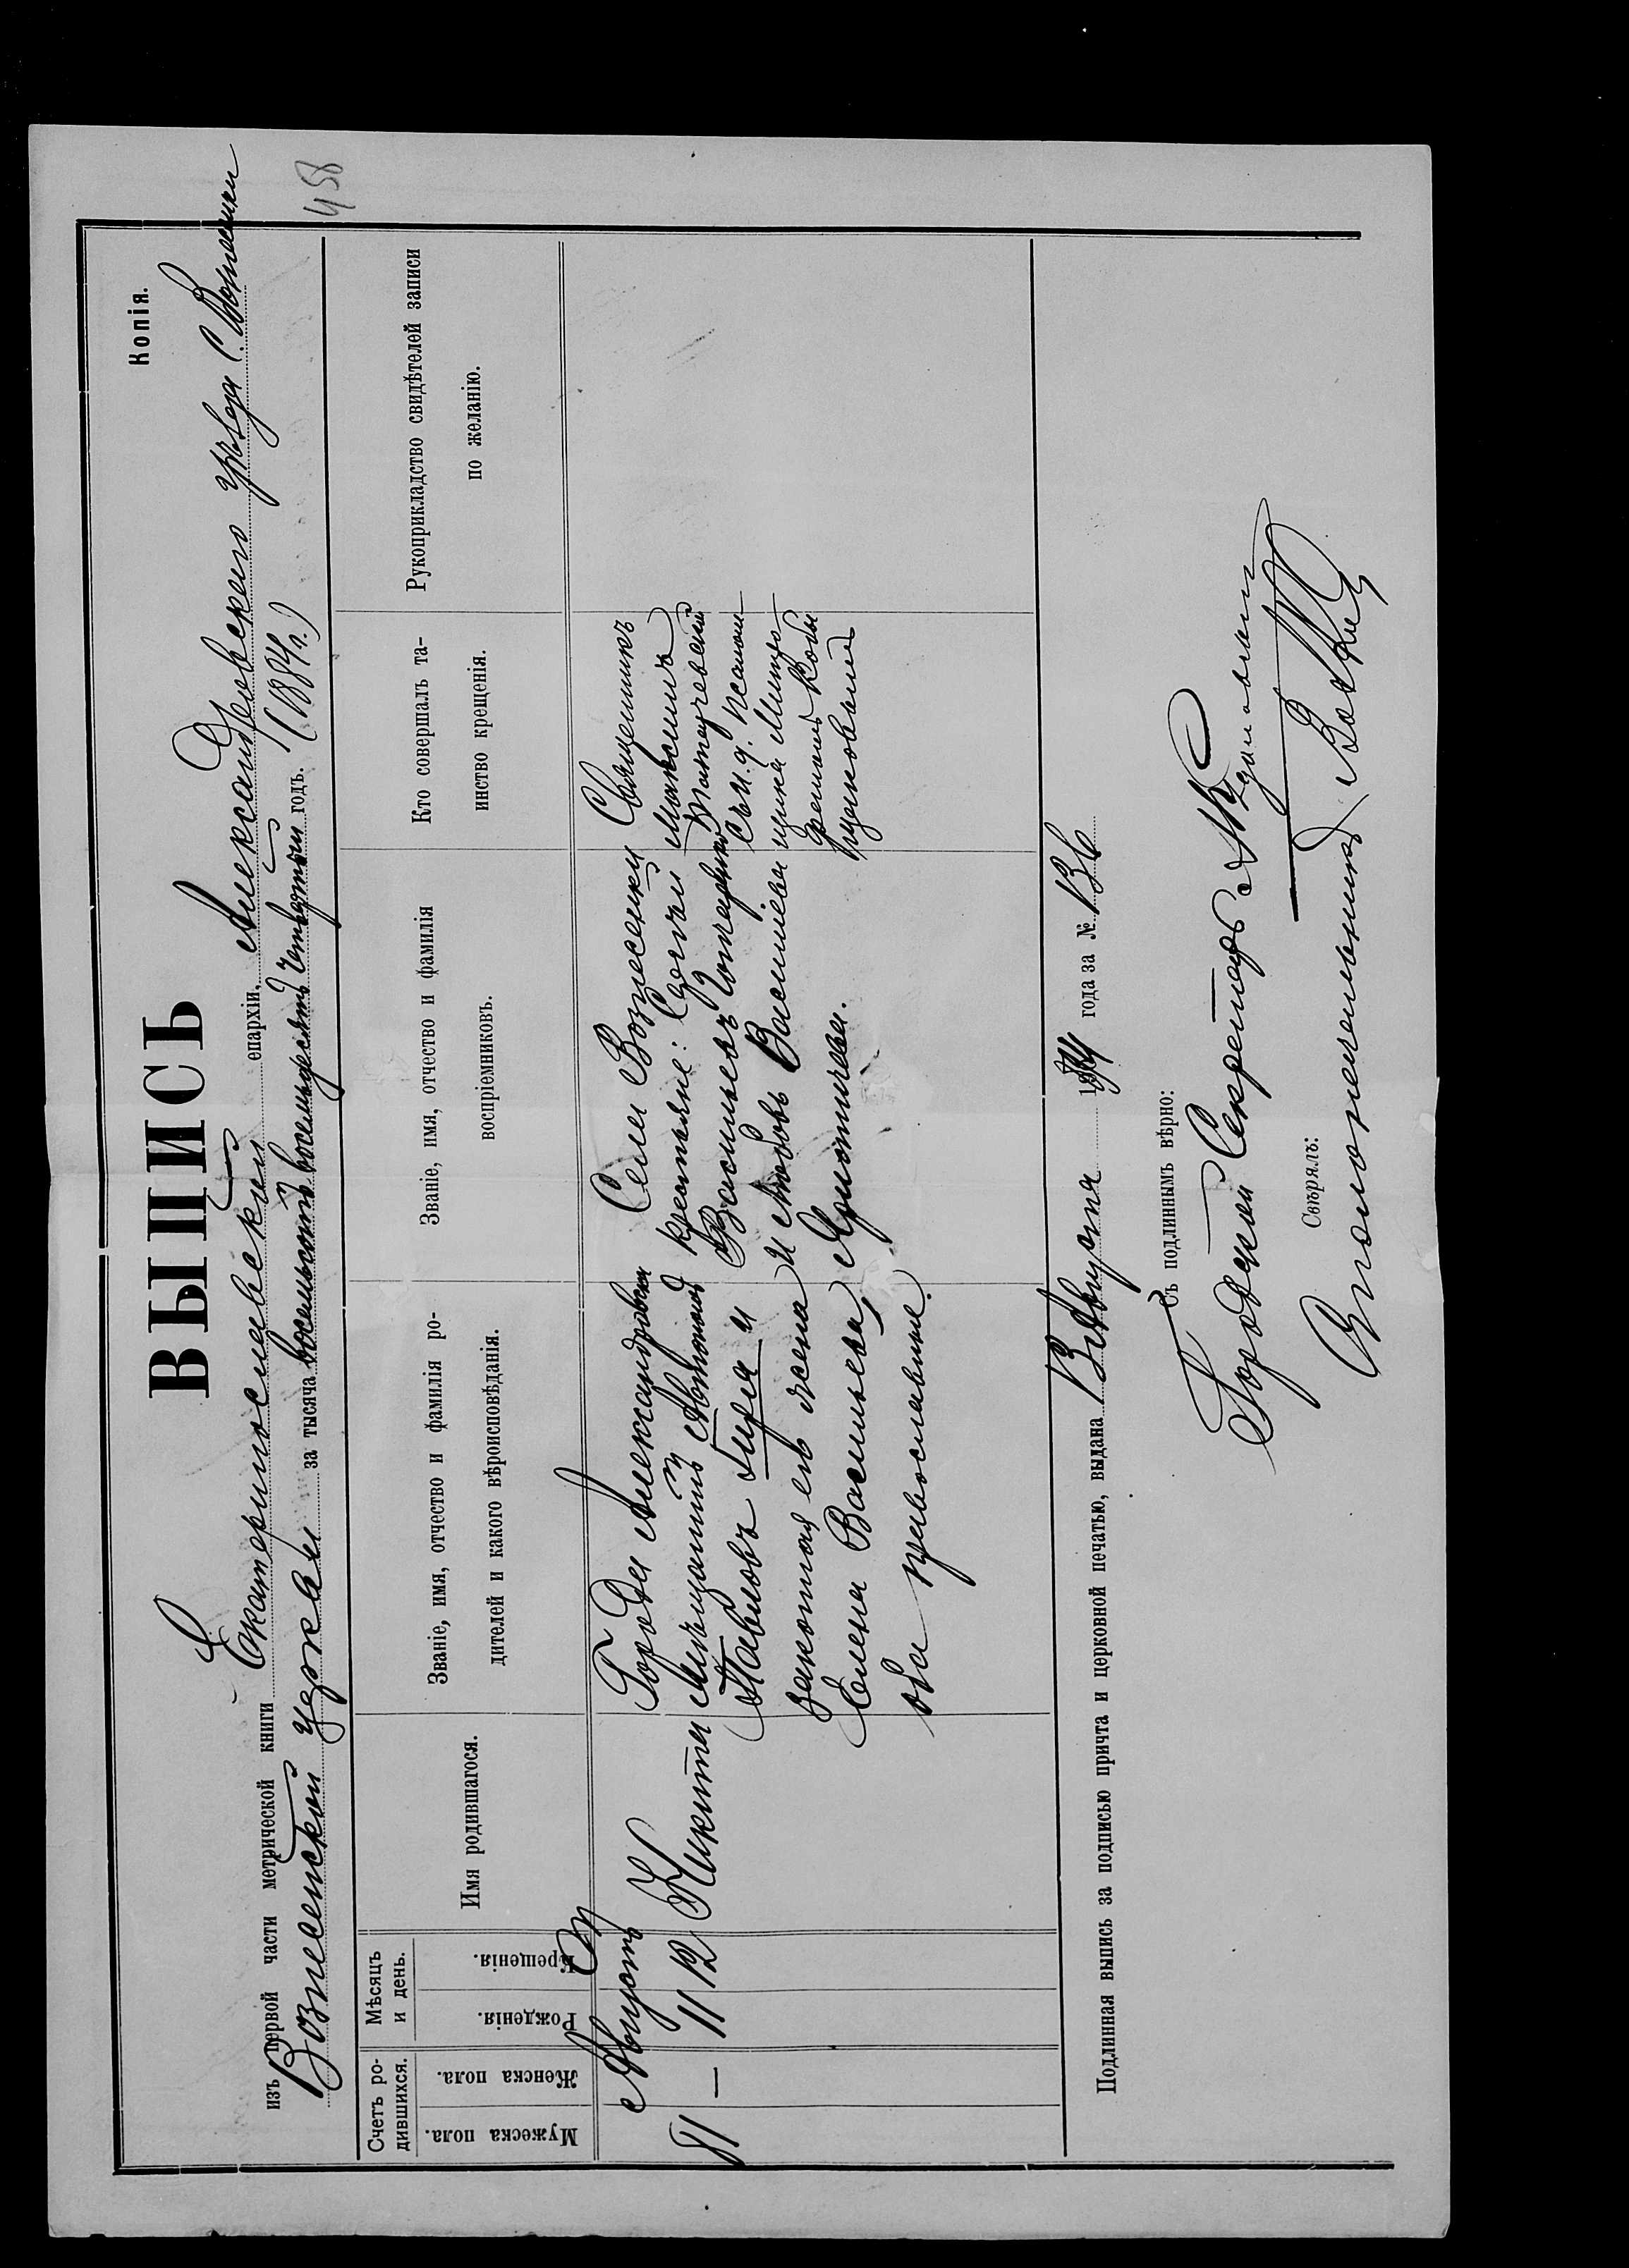 Копія.
458
ВЫПИСЬ
изъ первой части метрической книги Екатеринославской епархіи, Александровскаго уѣзда С. Вознесенки
Вознесенской церкви за тысяча восемьсотъ восемьдесятъ четвертый годъ. (1884 г.)
Счетъ ро-
дившихся.
Мужеска пола.
Женска пола.
Мѣсяцъ
и день.
Рожденія.
Крещенія.
Имя родившагося.
Званіе, имя, отчество и фамилія ро-
дителей и какого вѣроисповѣданія.
Званіе, имя, отчество и фамилія
воспріемниковъ.
Кто совершалъ та-
инство крещенія.
Рукоприкладство свидѣтелей записи
по желанію.
Августъ
81 — 11 12 Никита
Города Александровска
Мѣщанинъ Автономъ
Павловъ и
законная его жена
Елена Васильева,
оба православные.
Села Вознесенки
крестьяне: Сергѣй
Васильевъ Гончаренко
и Любовь Василіева
Священникъ
Максимъ
съ и. д. псалом-
щика Митро-
Подлинная выпись за подписью причта и церковной печатью, выдана 13 Августа 1884 года за № 136
Съ подлиннымъ вѣрно:
Городской Секретарь
Свѣрялъ: